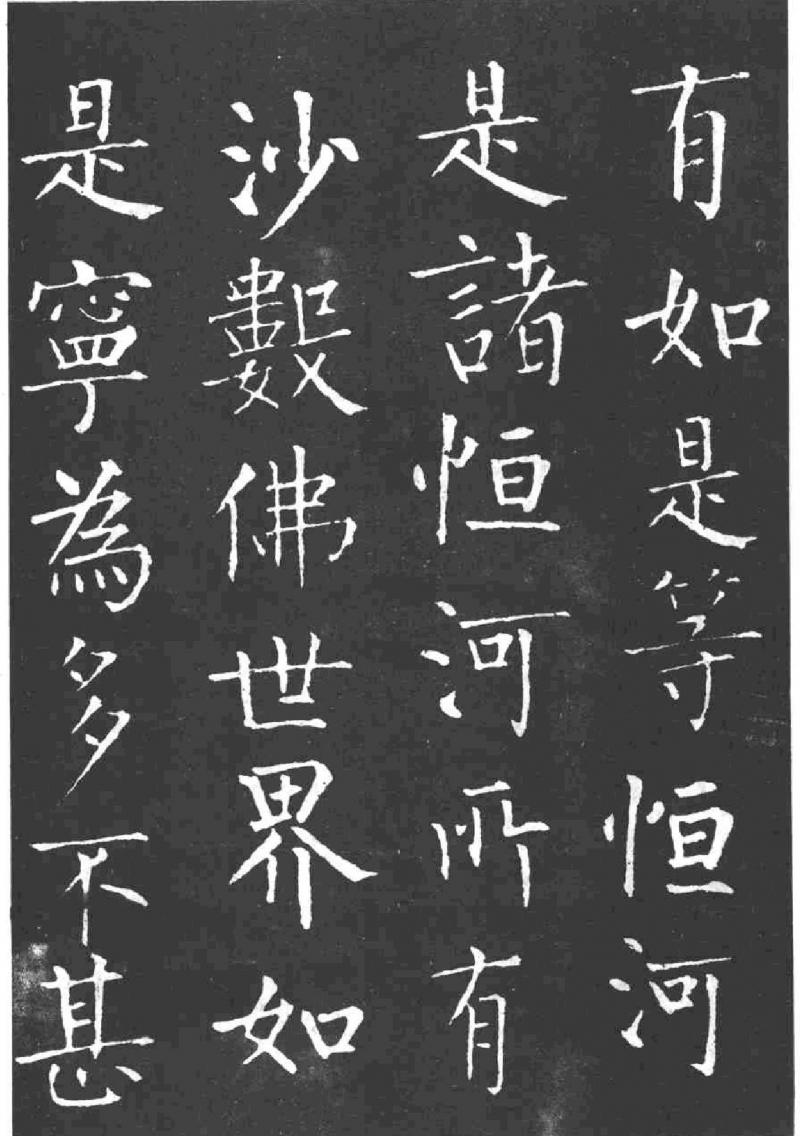 有如是等恒河
是諸恒河所有
沙數佛世界如
是寧為多不甚